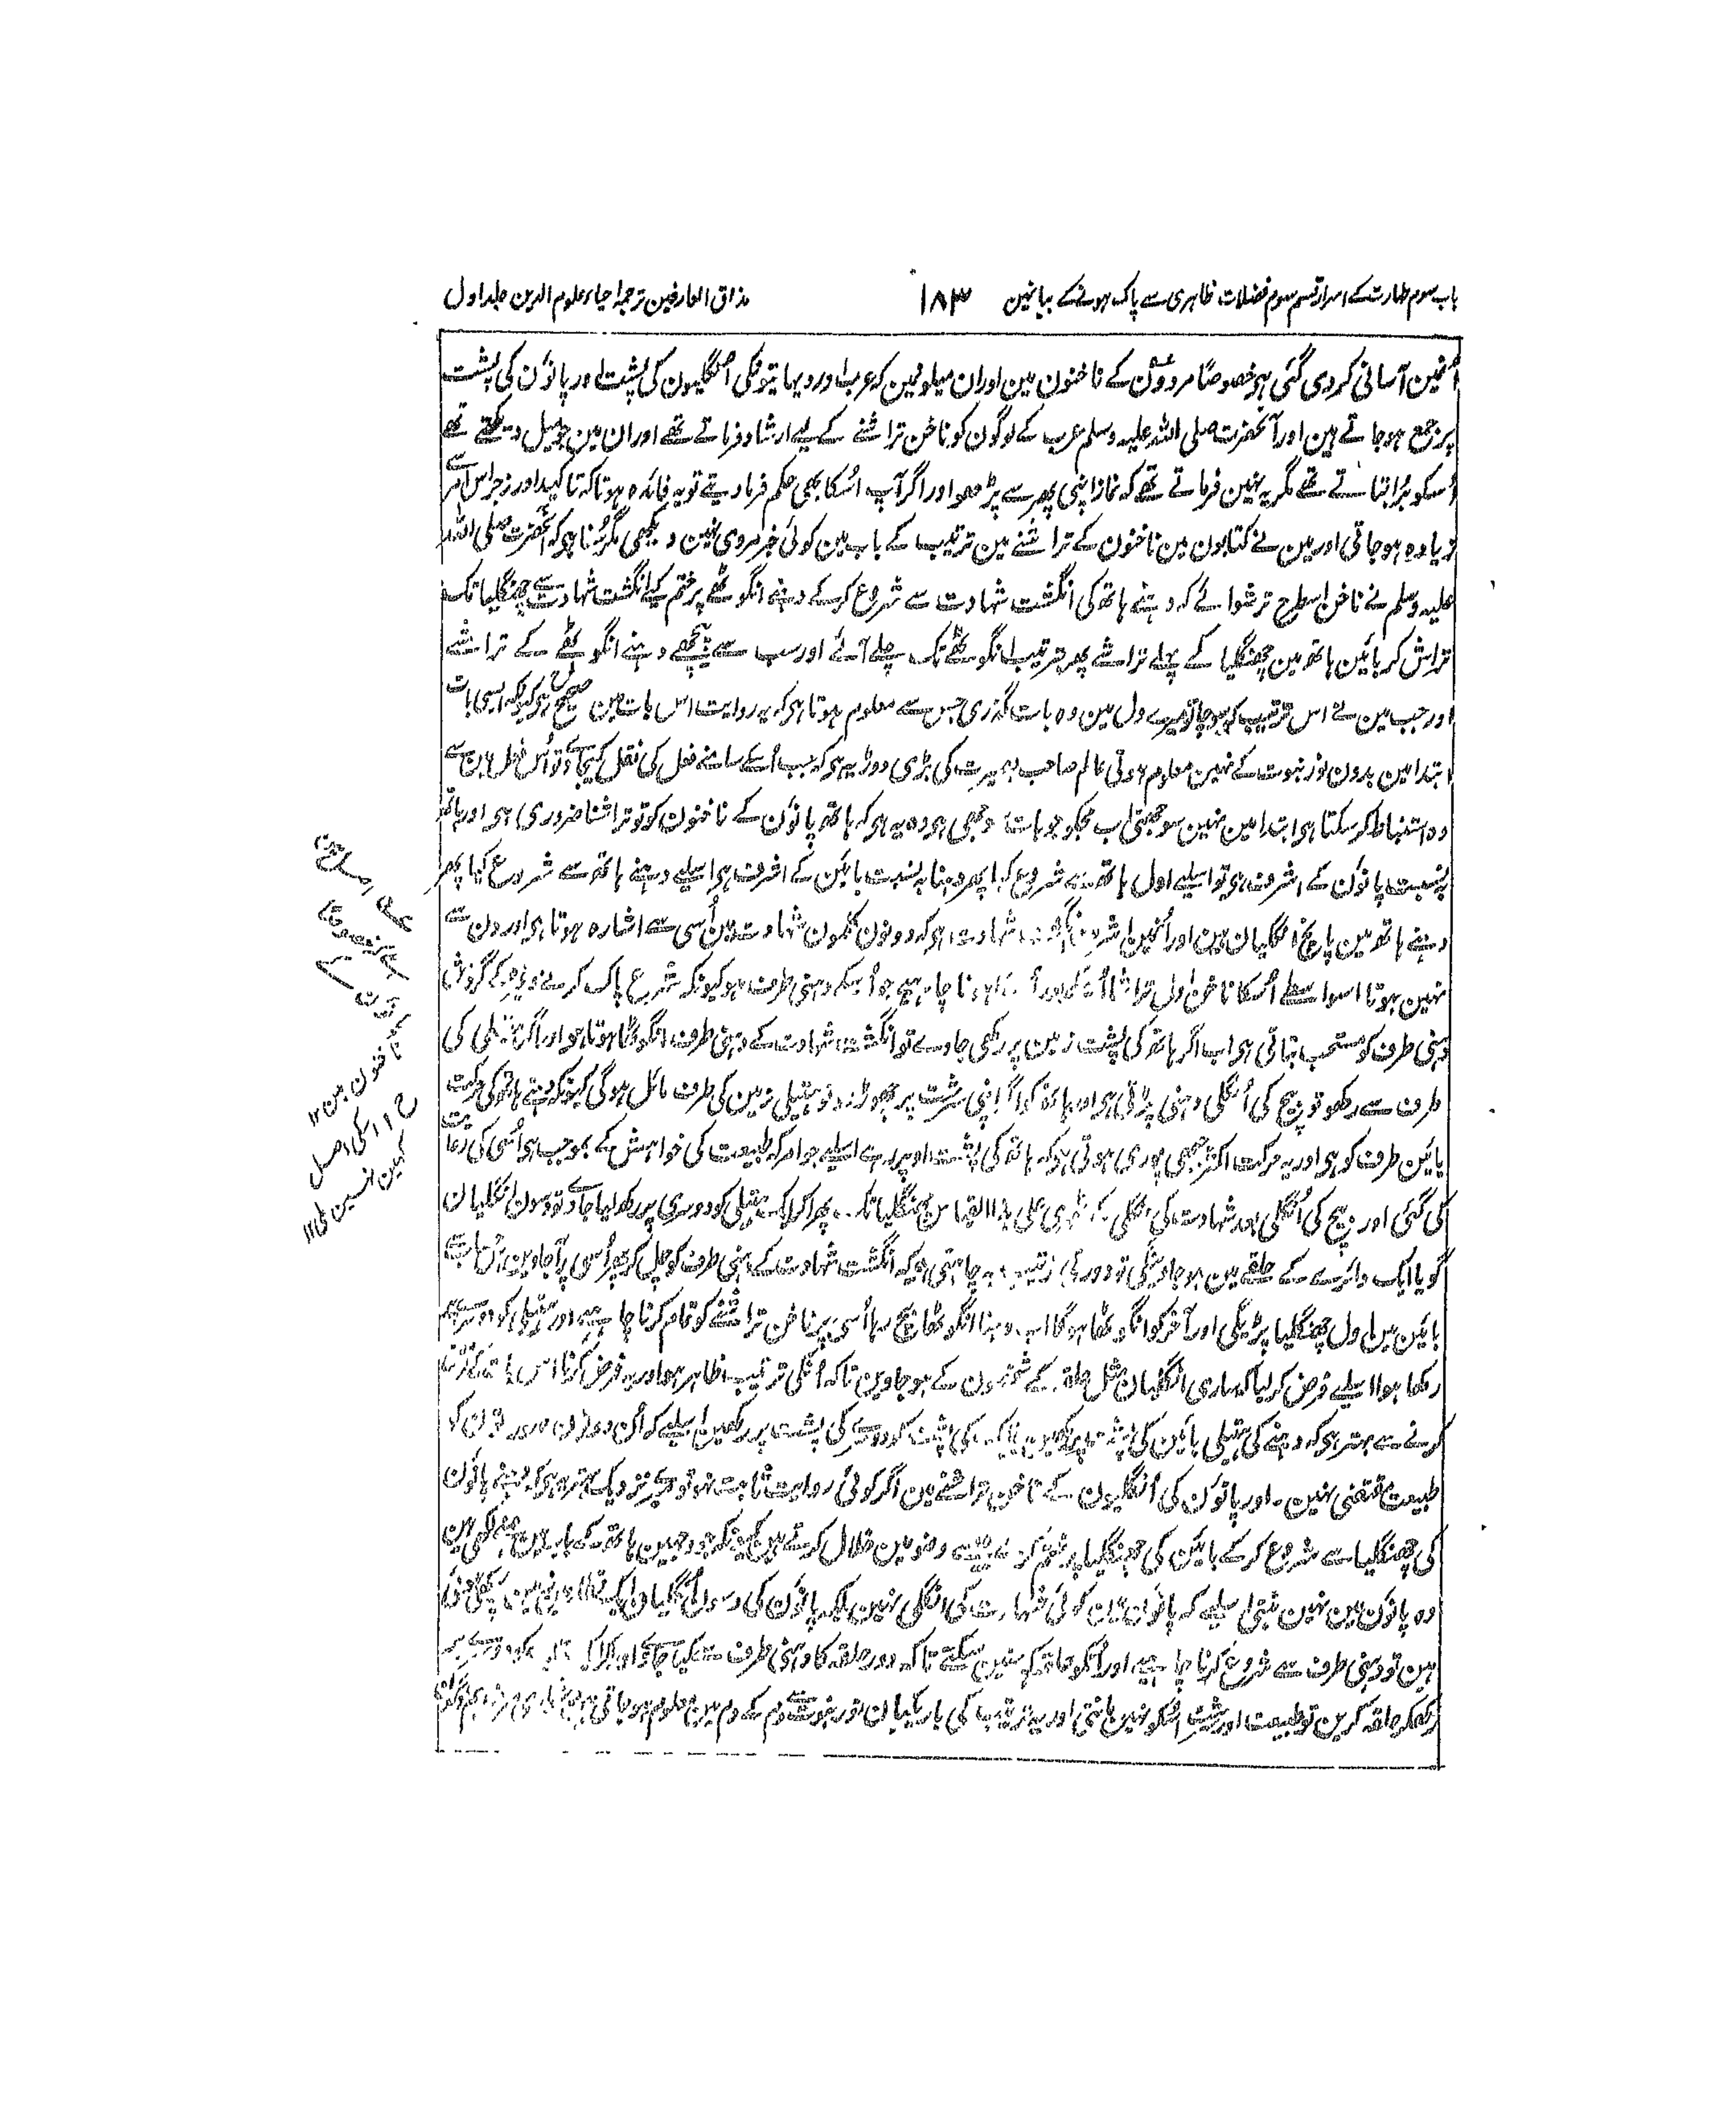 باب سوم طہارت کے اسرار قسم سوم فضلات ظاہری سے پاک ہونے کے بیانمین ۱۸۳ مذاق العارفین ترجمۂ احیاء علوم الدین جلد اول
اُنمین آسانی کردی گئی ہو خصوصاً مردون کے ناخنون مین اور ان میلونمین کہ عرب اور دیہاتیونکی اُنگلیون کی پشت اور پانوٗن کی پشت
پر جمع ہوجاتے ہین اور آنحضرت صلی اللہ علیہ وسلم عرب کے لوگون کو ناخن تراشنے کے لیے ارشاد فرماتے تھے اور ان مین جو میل دیکھتے تھے
اُسکو بُرا بتاتے تھے مگر یہ نہین فرماتے تھے کہ نماز اپنی پھر سے پڑھو اور اگر آپ اُسکا بھی حکم فرما دیتے تو یہ فائدہ ہوتا کہ تاکید اور زجر اس امر سے
زیادہ ہوجاتی اور مین نے کتابون مین ناخنون کے تراشنے مین ترتیب کے باب مین کوئی خبر مروی نہین دیکھی مگر سُنا ہو کہ آنحضرت صلی اللہ
علیہ وسلم نے ناخن اسطرح ترشوائے کہ دہنے ہاتھ کی انگشت شہادت سے شروع کرکے دہنے انگوٹھے پر ختم کیے انگشت شہادت سے چھنگلیا تک
تراش کر بائین ہاتھ مین چھنگلیا کے پہلے تراشے پھر بترتیب انگوٹھے تک چلے آئے اور سب سے پیچھے دہنے انگوٹھے کے تراشے
اور جب مین نے اس ترتیب کو سوچا تو میرے دل مین وہ بات گذری جس سے معلوم ہوتا ہو کہ یہ روایت اس بات مین صحیح ہو کیونکہ ایسی بات
ابتدا مین بدون نور نبوت کے نہین معلوم ہوتی عالم صاحب بصیرت کی بڑی دوڑ یہ ہو کہ جب اُسکے سامنے فعل کی نقل کیجاوے تو اُس فعل مین سے
وہ استنباط کرسکتا ہو ابتدا مین نہین سوجھتی اب مجکو جو بات سوجھی ہو وہ یہ ہو کہ ہاتھ پانوٗن کے ناخنون کو تو تراشنا ضروری ہو اور ہاتھ
بنسبت پانوٗن کے اشرف ہو تو اسلیے اول ہاتھ سے شروع کیا پھر دہنا بہ نسبت بائین کے اشرف ہو اسلیے دہنے ہاتھ سے شروع کیا پھر
دہنے ہاتھ مین پانچ انگلیان ہین اور اُنمین اشرف انگشت شہادت ہو کہ دونون کلمون شہادت مین اُسی سے اشارہ ہوتا ہو اورون سے
نہین ہوتا اسواسطے اُسکا ناخن اول تراشا اُسکے بعد اُسکا ہونا چاہیے جو اُسکے دہنی طرف ہو کیونکہ شرع پاک کرنے وغیرہ کے گردش
دہنی طرف کو مستحب بتاتی ہو اب اگر ہاتھ کی پشت زمین پر رکھی جاوے تو انگشت شہادت کے دہنی طرف انگوٹھا ہوتا ہو اور اگر ہتیلی کی
طرف سے رکھو تو بیچ کی اُنگلی دہنی پڑتی ہو اور ہاتھ کو اگر اپنی سرشت پر چھوڑ دو تو ہتیلی زمین کی طرف مائل ہوگی کیونکہ دہنے ہاتھ کی حرکت
بائین طرف کو ہو اور یہ حرکت اکثر جبھی پوری ہوتی ہو کہ ہاتھ کی پشت اوپر رہے اسلیے جو امر کہ طبیعت کی خواہش کے بموجب ہو اُسی کی رعایت
کی گئی اور بیچ کی اُنگلی بعد شہادت کی اُنگلی کے ٹھہری علی ہذا القیاس چھنگلیا تک پھر اگر ایک ہتیلی کو دوسری پر رکھ لیا جاوے تو دسون انگلیان
گویا ایک دائرے کے حلقے مین ہوجاوینگی تو دور کی ترتیب یہ چاہتی ہو کہ انگشت شہادت کے دہنی طرف کو چل کر پھر اُسی پر آجاوین
بائین مین اول چھنگلیا پڑیگی اور آخر کو انگوٹھا ہوگا اب دہنا انگوٹھا بچ رہا اُسی پر ناخن تراشنے کو تمام کرنا چاہیے اور ہتیلی کو دوسری پر
رکھا ہوا اسلیے فرض کرلیا کہ ساری انگلیان مثل حلقہ کے شخصون کے ہوجاوین تاکہ اُنکی ترتیب ظاہر ہو اور یہ فرض کرنا اس بات کے فرض
کرنے سے بہتر ہو کہ دہنے کی ہتیلی بائین کی پشت پر رکھین یا ایک کی پشت کو دوسرے کی پشت پر رکھین اسلیے کہ اُن دونون صورتون کو
طبیعت مقتضی نہین۔ اور پانوٗن کی اُنگلیون کے ناخن تراشنے مین اگر کوئی روایت ثابت نہو تو میرے نزدیک بہتر یہ ہو کہ دہنے پانوٗن
کی چھنگلیا سے شروع کرکے بائین کی چھنگلیا پر ختم کرے جیسے وضو مین خلال کرتے ہین کیونکہ جو وجہین ہاتھ کے باب مین ہمنے لکھی ہین
وہ پانوٗن مین نہین بنتی اسلیے کہ پانوٗن مین کوئی شہادت کی اُنگلی نہین بلکہ پانوٗن کی دسون اُنگلیان ایک قطار زمین مین
ہین تو دہنی طرف سے شروع کرنا چاہیے اور اُنکو حلقہ کہہ نہین سکتے تاکہ دور حلقہ کا دہنی طرف سے کیا جاوے اور اگر ایک کو دوسرے پر
رکھکر حلقہ کرین تو طبیعت اور سرشت اُسکو نہین مانتی اور یہ ترتیب کی باریکیان نور نبوت سے دم کے دم مین معلوم ہوجاتی ہین
ناخنون مین ۱۲
ح ۱۱ اسکی اصل
کہین نہین ملی ۱۱